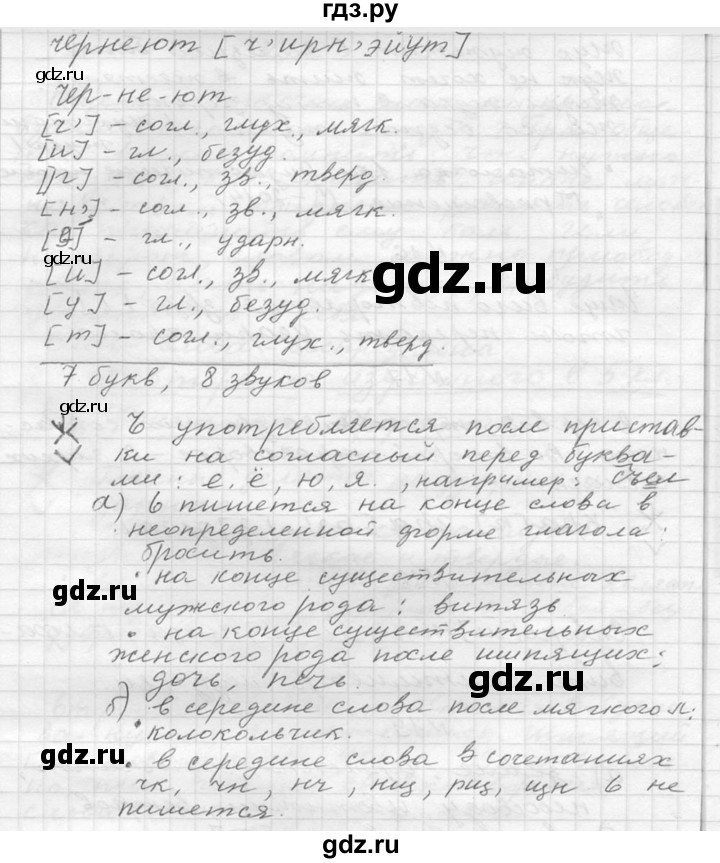 гдз.ру
чернеют [ч'ирн'эйут]
gdz.ru
чер-не-ют
[ч'] – согл., глух., мягк.
[и] – гл., безуд.
[р] – согл., зв., тверд.
gdz.ru
[н'] – согл., зв., мягк.
[э] – гл., ударн.
[й] – согл., зв., мягк
gdz.ru
[у] – гл., безуд.
[т] – согл., глух., тверд.
7 букв, 8 звуков
gdz.ru
Ъ употребляется после пристав-
ки на согласный перед буква-
ми: е, ё, ю, я., например: съел
а) ь пишется на конце слова в
gdz.ru
неопределенной форме глагола:
бросить.
• на конце существительных
gdz.ru
мужского рода: витязь
• на конце существительных
женского рода после шипящих:
дочь, печь.
gdz.ru
б) в середине слова после мягкого л:
• колокольчик.
• в середине слова в сочетаниях
gdz.ru
чк, чн, нч, нщ, рщ, щн ь не
пишется.
gdz.ru
gdz.ru